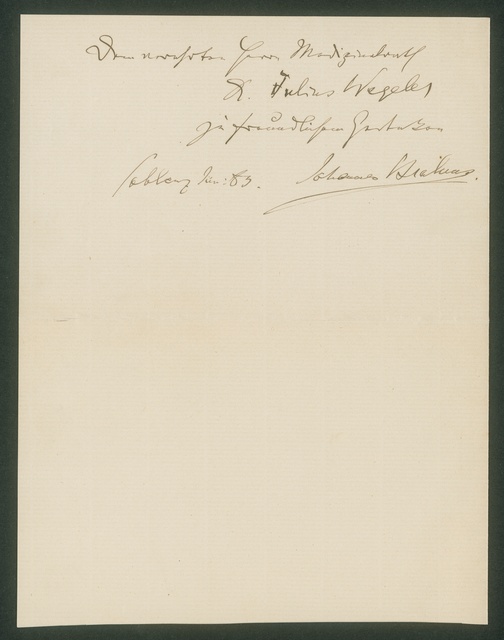 Dem verehrten Herrn Medizinalrath
Dr. Julius Wegeler
zu freundlichem Gedenken
Coblenz Jan: 83. Johannes Brahms.